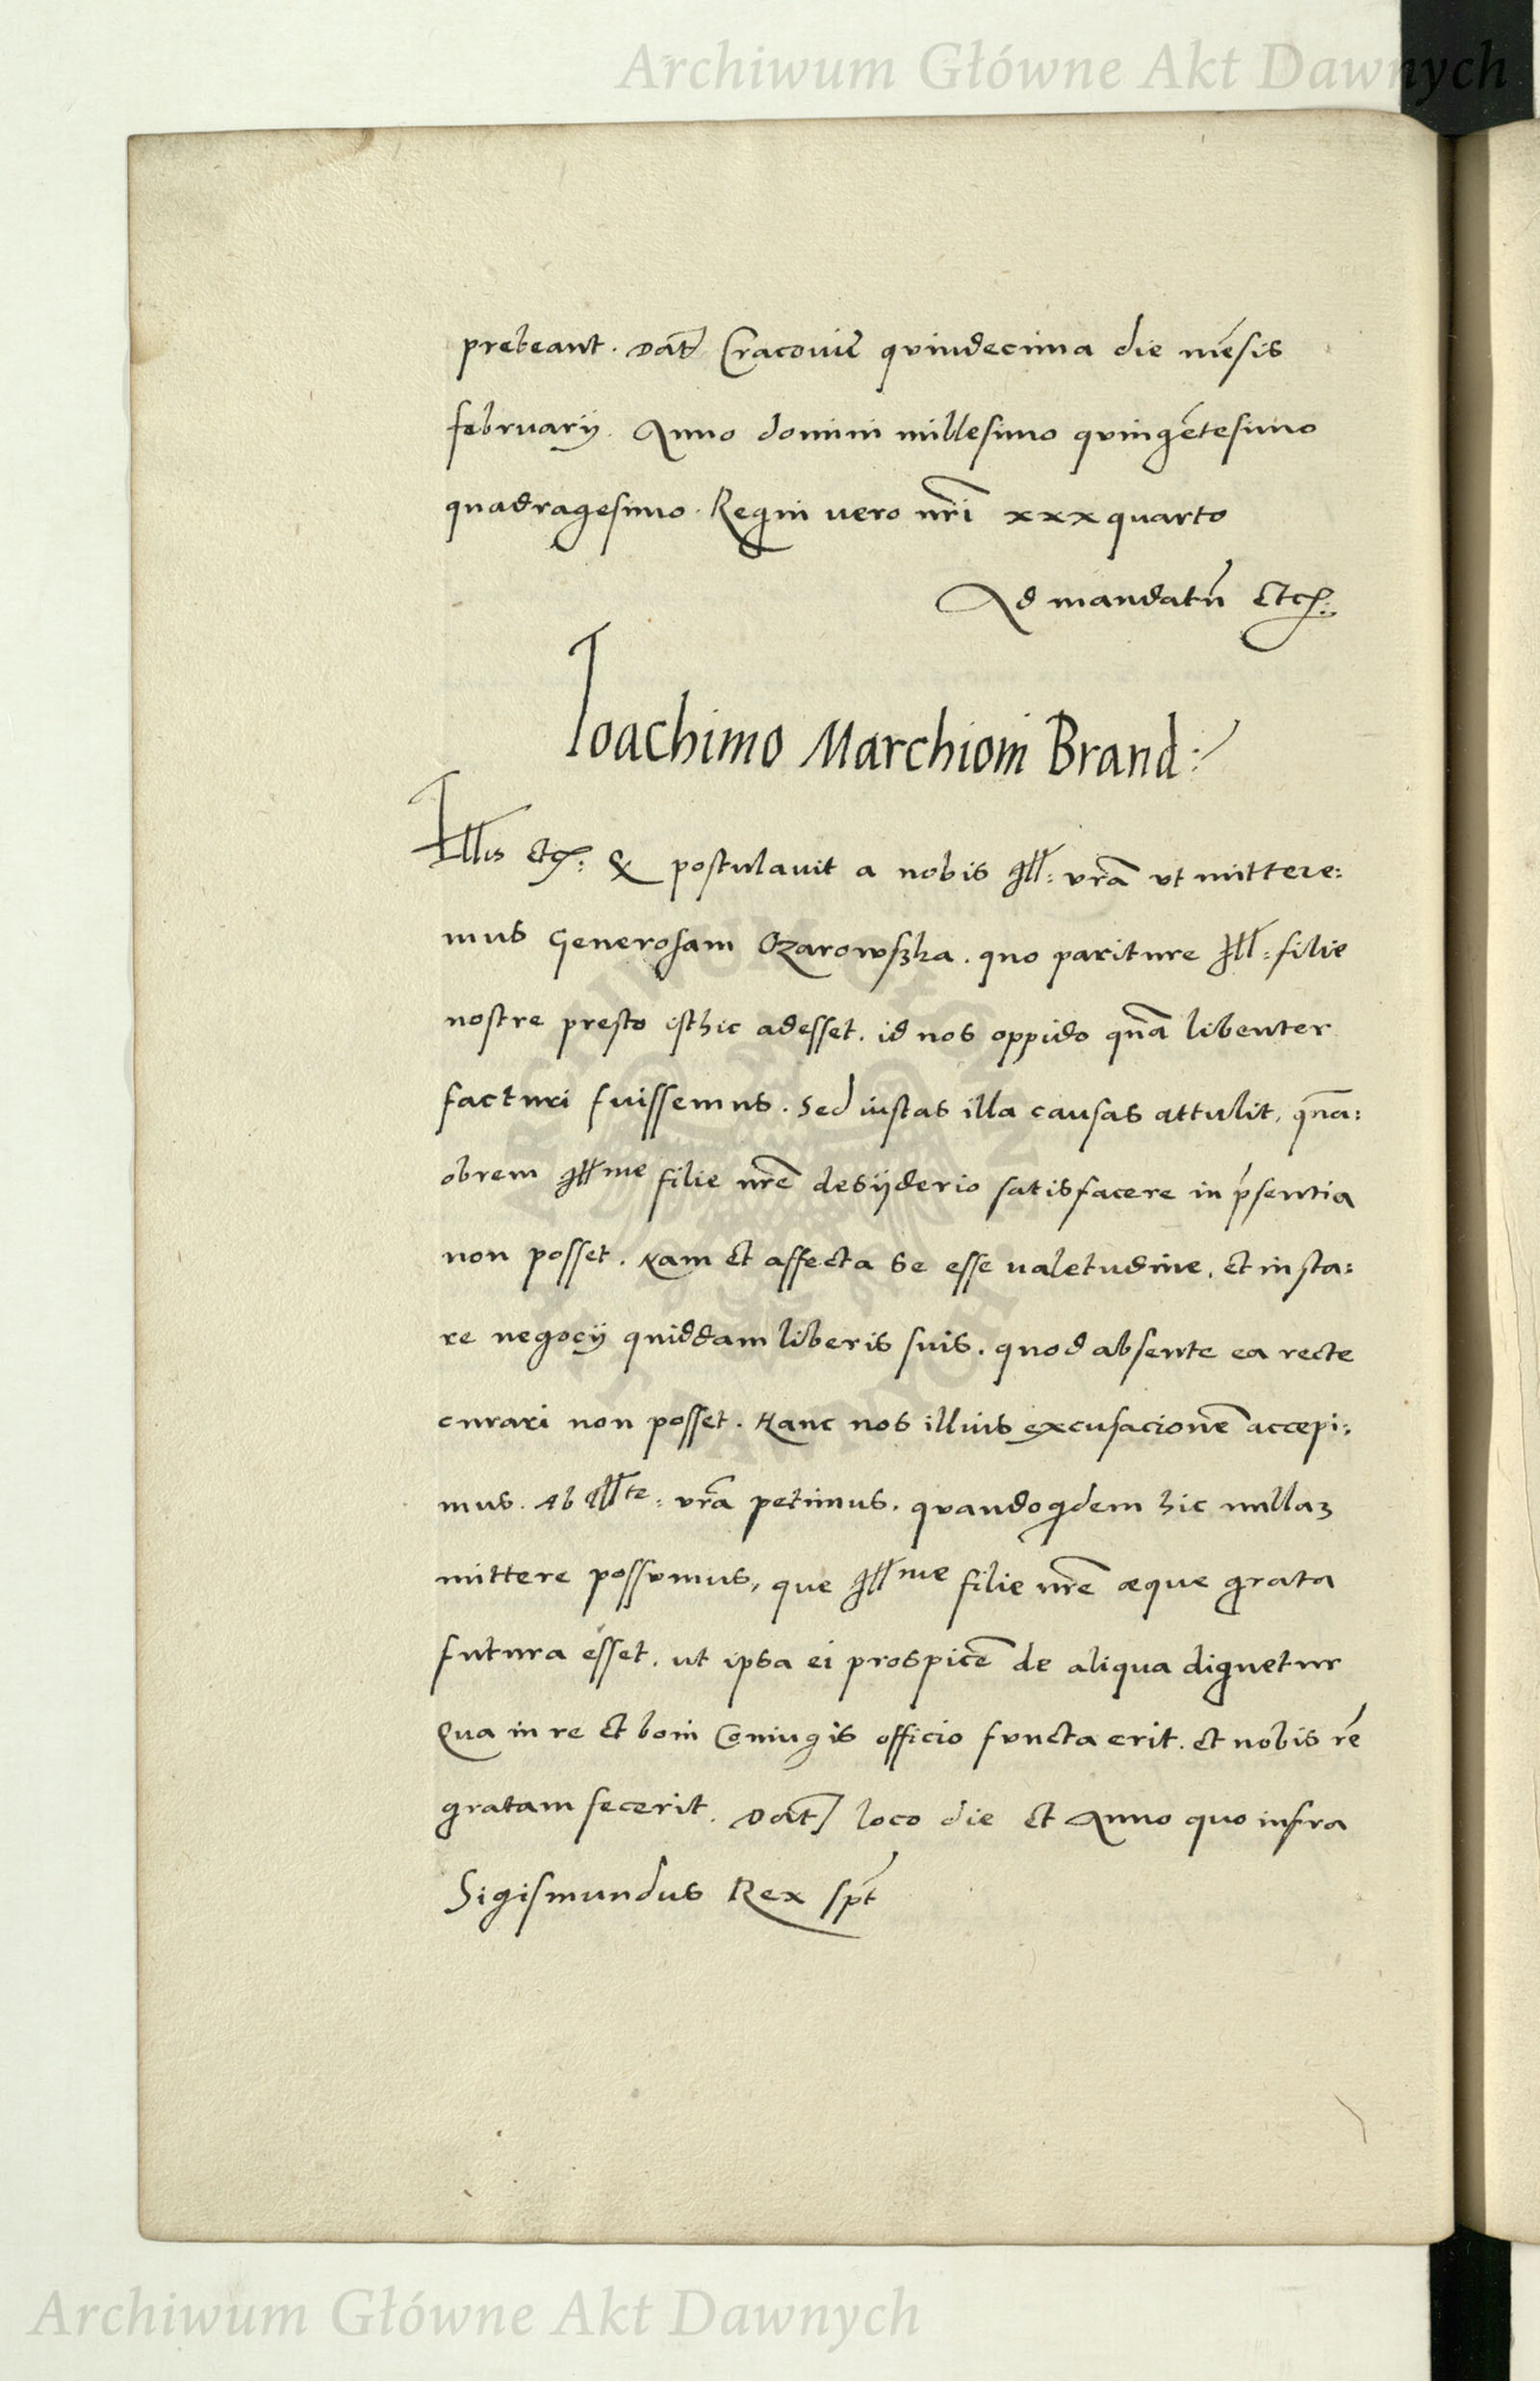 Archiwum Główne Akt Dawnych
prebeant. Dat̃ Cracovie quindecima die mẽsis
february. Anno domini millesimo quingẽtesimo
quadragesimo. Regni vero nr̃i xxx quarto
Ad mandatũ etc:
Ioachimo Marchioni Brand:
Illis etc: & postulavit a nobis Ill: vrã ut mittere:
mus Generosam Ozarowszka. quo pariture Ill: filie
nostre presto isthic adesset. id nos oppido quã libenter
facturi fuissemus. Sed iustas illa causas attulit, quã:
obrem Illme filie nrẽ desyderio satisfacere in p̃sentia
non posset. Nam et affecta se esse valetudine, et insta:
re negocy quiddam liberis suis. quod absente ea recte
curari non posset. Hanc nos illius excusacionẽ accepi:
mus. Ab Illte: vrã petimus. quandoqdem hic nullaz
mittere possumus, que Illme filie nrẽ æque grata
futura esset. ut ipsa ei prospicẽ de aliqua dignetur
Qua in re et boni Coniugis officio functa erit. et nobis rẽ
gratam fecerit. Dat̃ loco die et Anno quo infra
Sigismundus Rex spt̃
Archiwum Główne Akt Dawnych